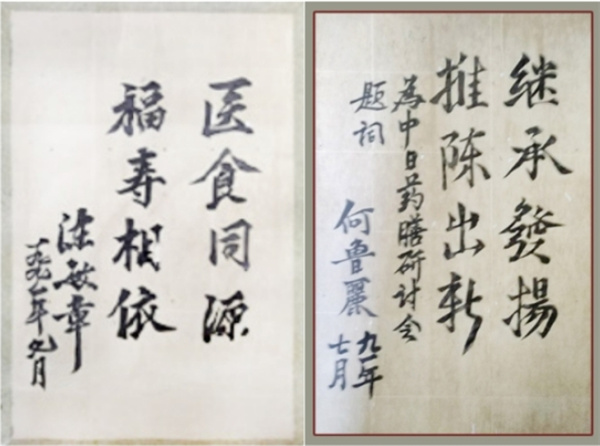 医食同源
福寿相依
陈敏章
一九九一年九月
继承發揚
推陈出新
為中日药膳研讨会
题词
何鲁麗
九一年
七月